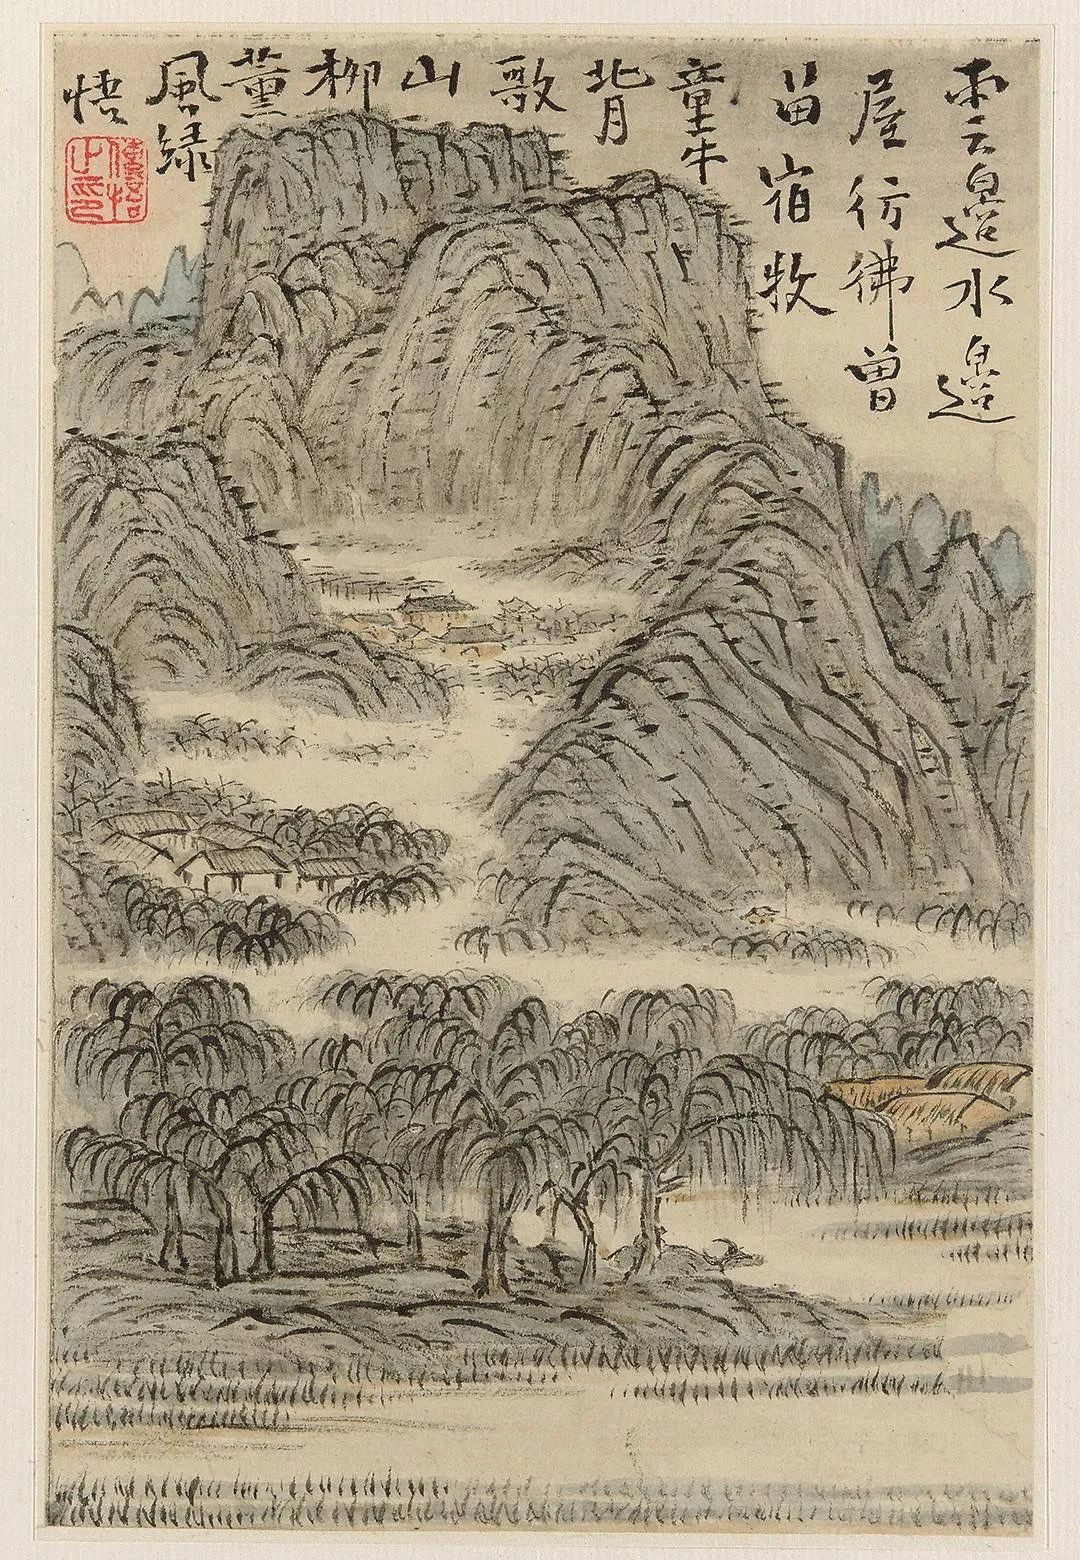 雲邊水邊
屋彷彿曾
畄宿牧
童牛
背
歌
山
柳
薰
風綠
悟
僧悟之印